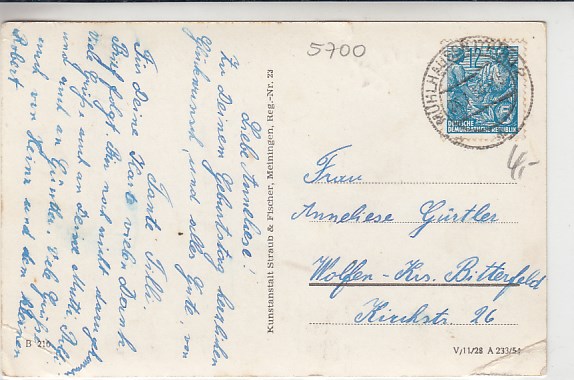 Liebe Anneliese!
Zu Deinem Geburtstag herzlichen
Glückwunsch und alles Gute, von
Tante Tilli.
Für Deine Karte vielen Dank
Brief folgt. Nur noch nicht
Viele Grüße auch an Deine Mutti,
und auch an Günther. Viele Grüße
auch von Heinz und dem kleinen
Robert
B 216
Kunstanstalt Straub & Fischer, Meiningen, Reg.-Nr. 23
5700
MÜHLHAUSEN
12
DEUTSCHE
DEMOKRATISCHE REPUBLIK
4,-
Frau
Anneliese Gürtler
Wolfen-Krs. Bitterfeld
Kirchstr. 26
V/11/28 A 233/54